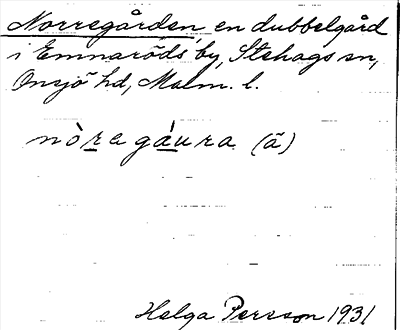 Norregården, en dubbelgård
i Emnaröds by, Stehags sn,
Onsjö hd, Malm. l.
nòregáura (ã)
Helga Persson 1931